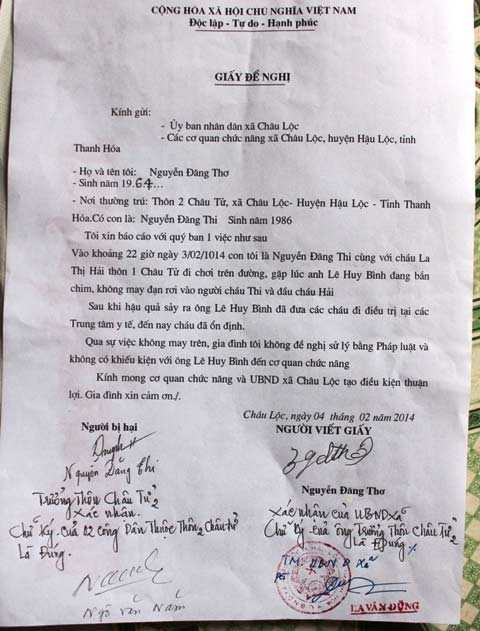 CỘNG HÒA XÃ HỘI CHỦ NGHĨA VIỆT NAM
Độc lập - Tự do - Hạnh phúc
GIẤY ĐỀ NGHỊ
Kính gửi:
- Ủy ban nhân dân xã Châu Lộc
- Các cơ quan chức năng xã Châu Lộc, huyện Hậu Lộc, tỉnh
Thanh Hóa
- Họ và tên tôi: Nguyễn Đăng Thơ
- Sinh năm 1964...
- Nơi thường trú: Thôn 2 Châu Tử, xã Châu Lộc- Huyện Hậu Lộc- Tỉnh Thanh
Hóa.Có con là: Nguyễn Đăng Thi Sinh năm 1986
Tôi xin báo cáo với quý ban 1 việc như sau
Vào khoảng 22 giờ ngày 3/02/1014 con tôi là Nguyễn Đăng Thi cùng với cháu La
Thị Hải thôn 1 Châu Tử đi chơi trên đường, gặp lúc anh Lê Huy Bình đang bắn
chim, không may đạn rơi vào người cháu Thi và đầu cháu Hải
Sau khi hậu quả sảy ra ông Lê Huy Bình đã đưa các cháu đi điều trị tại các
Trung tâm y tế, đến nay cháu đã ổn định.
Qua sự việc không may trên, gia đình tôi không đề nghị sử lý bằng Pháp luật và
không có khiếu kiện với ông Lê Huy Bình đến cơ quan chức năng
Kính mong cơ quan chức năng và UBND xã Châu Lộc tạo điều kiện thuận
lợi. Gia đình xin cảm ơn./.
Châu Lộc, ngày 04 tháng 02 năm 2014
Người bị hại
NGƯỜI VIẾT GIẤY
Nguyễn Đăng Thi
Nguyễn Đăng Thơ
Trưởng Thôn Châu Tử 2
Xác nhận.
Chữ Ký của 02 công Dân Thuộc Thôn 2 Châu Tử
Là Đúng.
Ngô Văn Năm
Xác nhận của UBND xã
Chữ Ký của ông Trưởng Thôn Châu Tử 2
Là Đúng
TM. UBND Xã
LA VĂN ĐỘNG